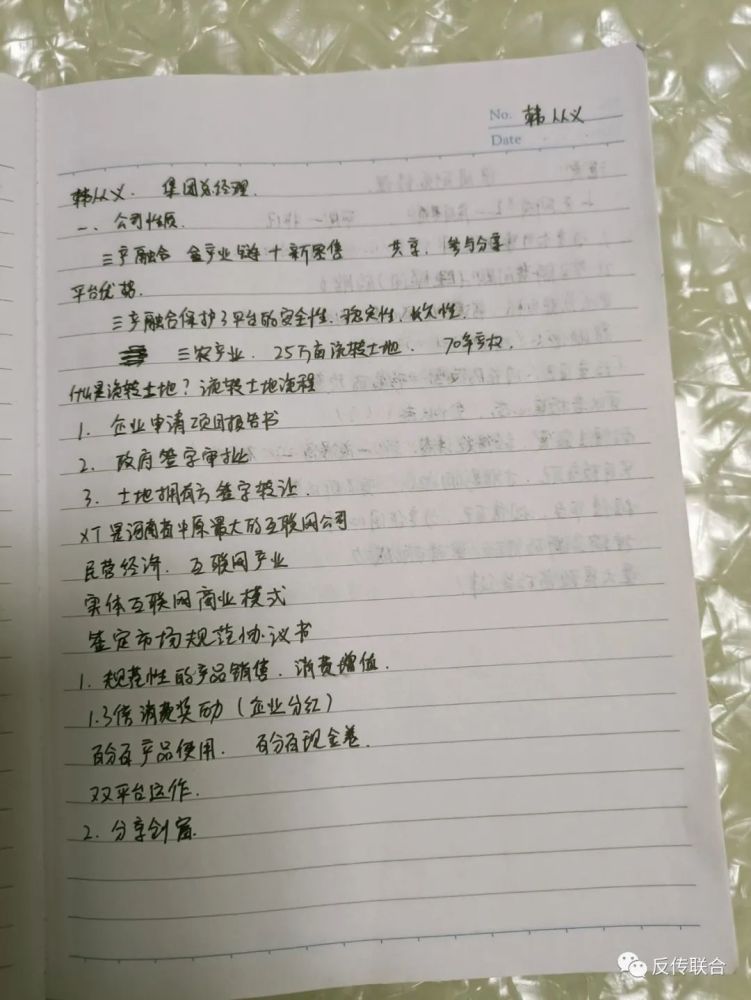 No. 韩从义
Date
韩从义. 集团总经理.
一、公司性质.
三产融合 全产业链十新零售 共享, 参与分享
平台优势.
三产融合保护了平台的安全性、稳定性、长久性.
三农产业. 25万亩流转土地. 70年产权.
什么是流转土地? 流转土地流程
1. 企业申请项目报告书
2. 政府签字审批
3. 土地拥有方签字转让.
XT是河南省中原最大的互联网公司
民营经济. 互联网产业
实体互联网商业模式
签定市场规范协议书
1. 规范性的产品销售. 消费增值.
1.3倍消费奖励(企业分红)
百分百产品使用. 百分百现金卷.
双平台运作.
2. 分享创富.
反传联合